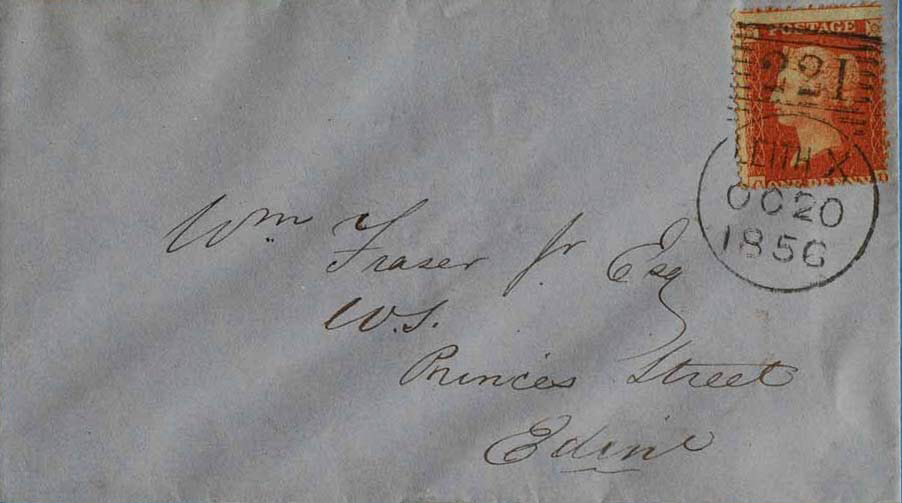 POSTAGE
221
LEITH X
OC 20
1856
Wm Fraser Jr Esq
W.S.
Princes Street
Edinr